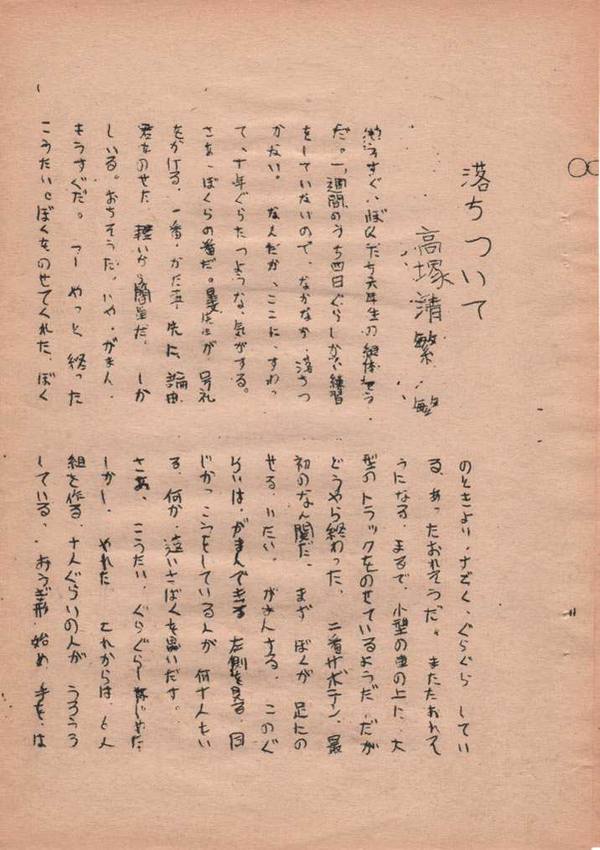 落ちついて
高塚 清繁 繁
もうすぐ、ぼくたち六年生の組体そう
だ。一週間のうち四日ぐらしか練習
をしていないので、なかなか落ちつ
かない。なんだか、ここに、すわっ
て、十年ぐらたつような、気がする。
さあ、ぼくらの番だ。が、号礼
をかける。一番・かた車・先に、
君をのせた。軽いから閣単だ。しか
している。おちそうだ。いや、がまん。
もうすぐだ。つー やっと 終った
こうたい。ぼくをのせてくれた。ぼく
のときより、すごく、ぐらぐら してい
る。あったおれそうだ。またたおれそ
うになる。まるで、小型の車の上に、大
型のトラックをのせているようだ。だが
どうやら終わった。二番サボテン、最
初のなん関だ。まず ぼくが 足にの
せる。いたい。がまんする。このぐ
らいは、がまんできる 左側を見る。同
じかっこうをしている人が 何十人もい
る。何か、さばくを思いだす。
さあ、こうたい。ぐらぐらしはじめた
しかし、やれた これからは 6人
組を作る。十人ぐらいの人が うろうろ
している。おうぎ形 始め 手を、は